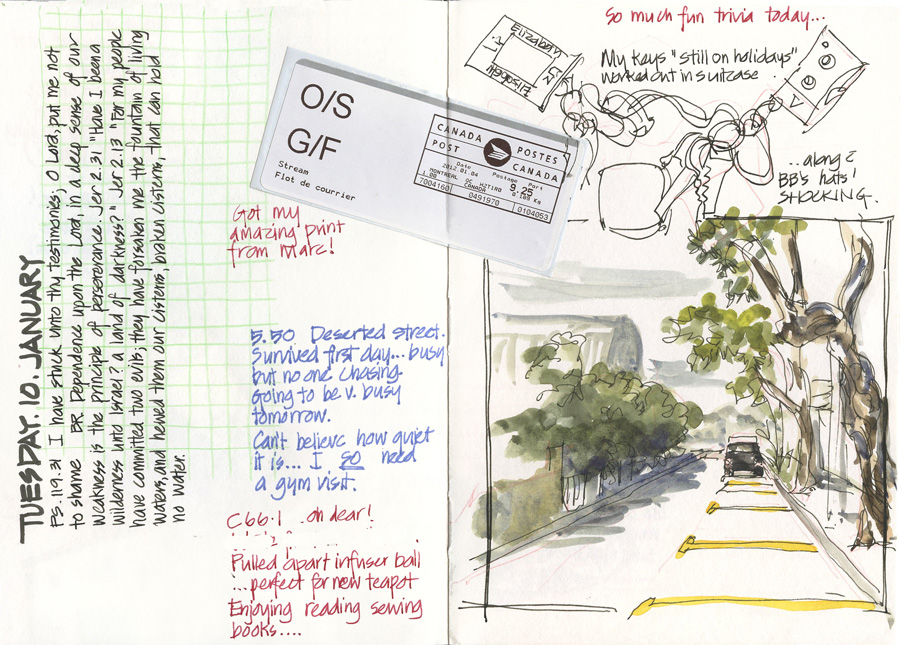 TUESDAY. 10. JANUARY
PS. 119.31 I have stuck unto thy testimonies; O Lord, put me not
to shame BR Dependence upon the Lord, in a deep sense of our
weakness is the principle of perseverance. Jer 2.31 "Have I been a
wilderness unto Israel? a land of darkness?" Jer 2.13 "For my people
have committed two evils; they have forsaken me the fountain of living
waters, and hewed them our cisterns, broken cisterns, that can hold
no water.
O/S
G/F
Stream
Flot de courrier
CANADA POSTES
POST CANADA
Date
2012.01.04
Postage Port
9.25
MONTREAL QC H2T1R0
CANADA
0.185 KG
7004160
0491970
0104053
Got my
amazing print
from Marc!
5.50 Deserted street.
Survived first day... busy
but no one chasing.
Going to be v. busy
tomorrow.
Can't believe how quiet
it is... I SO need
a gym visit.
C66.1 ..oh dear!
Pulled apart infuser ball
...perfect for new teapot
Enjoying reading sewing
books....
So much fun trivia today...
My keys "still on holidays"
worked out in suitcase.
Elizabeth
...along c
BB's hats!
SHOCKING.